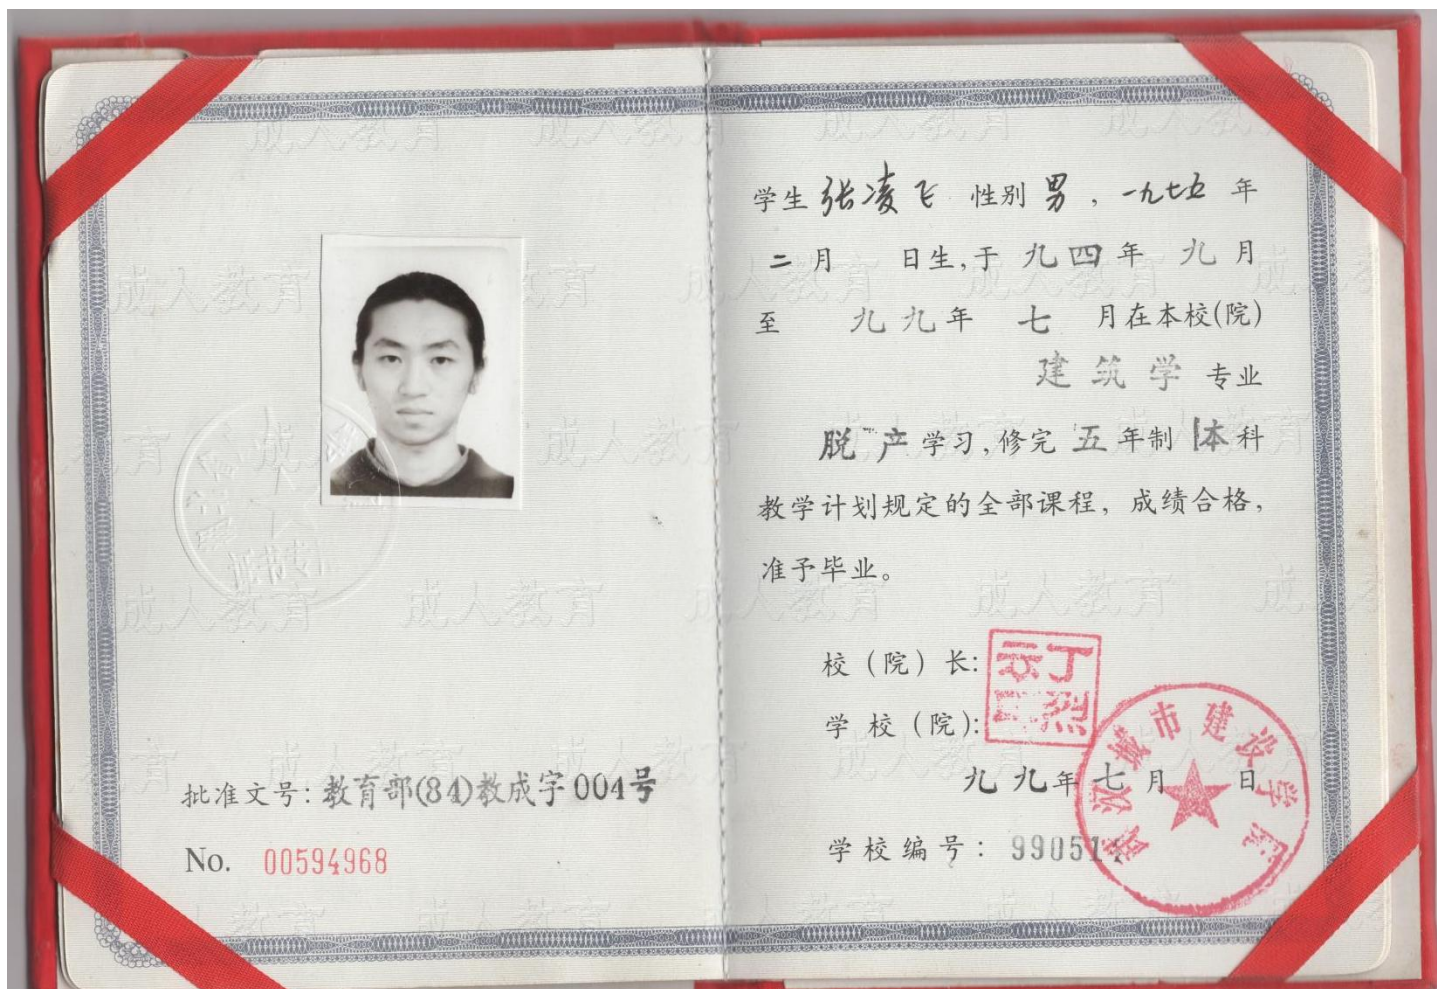 批准文号：教育部(84)教成字004号
No. 00594968
学生 张凌飞 性别 男，一九七五 年
二 月 日生,于 九四 年 九 月
至 九九 年 七 月在本校(院)
建筑学 专业
脱产 学习,修完 五 年制 本 科
教学计划规定的全部课程，成绩合格，
准予毕业。
校（院）长:
丁烈云印
学 校（院）:
武汉城市建设学院
九九年七月 日
学校编号：
成人教育